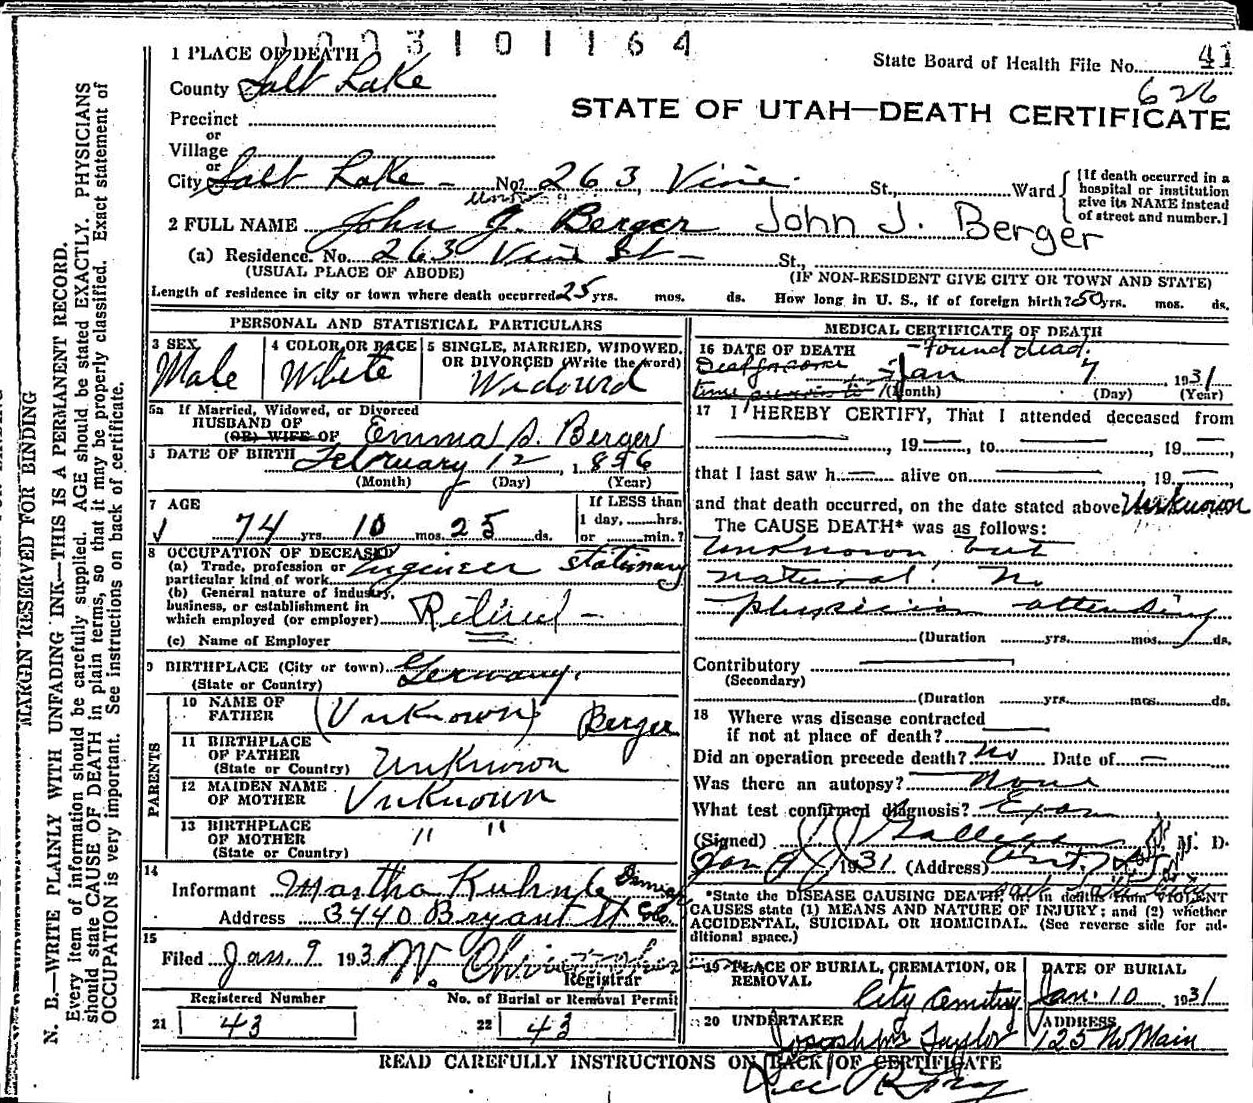 1003101164
1 PLACE OF DEATH
State Board of Health File No. 41
County Salt Lake
626
STATE OF UTAH—DEATH CERTIFICATE
Precinct
or
Village
or
City Salt Lake - No. 263, Vine St., Ward
[If death occurred in a hospital or institution give its NAME instead of street and number.]
2 FULL NAME John J. Berger John J. Berger
(a) Residence. No. 263 Vine St - St.,
(USUAL PLACE OF ABODE) (IF NON-RESIDENT GIVE CITY OR TOWN AND STATE)
Length of residence in city or town where death occurred 25 yrs. mos. ds. How long in U. S., if of foreign birth? 50 yrs. mos. ds.
PERSONAL AND STATISTICAL PARTICULARS
3 SEX
Male
4 COLOR OR RACE
White
5 SINGLE, MARRIED, WIDOWED, OR DIVORCED (Write the word)
Widowed
5a If Married, Widowed, or Divorced
HUSBAND OF
(OR) WIFE OF Emma S. Berger
DATE OF BIRTH February 12, 1856
(Month) (Day) (Year)
7 AGE
74 yrs. 10 mos. 25 ds.
If LESS than
1 day, hrs.
or min.?
8 OCCUPATION OF DECEASED
(a) Trade, profession or particular kind of work Engineer Stationary
(b) General nature of industry, business, or establishment in which employed (or employer) Retired -
(c) Name of Employer
9 BIRTHPLACE (City or town) Germany.
(State or Country)
PARENTS
10 NAME OF FATHER (Unknown) Berger
11 BIRTHPLACE OF FATHER Unknown
(State or Country)
12 MAIDEN NAME OF MOTHER Unknown
13 BIRTHPLACE OF MOTHER " "
(State or Country)
14
Informant Martha Kuhnle
Address 3440 Bryant St Denver Colo.
15
Filed Jan. 9 1931 W.
Registrar
Registered Number
21 43
No. of Burial or Removal Permit
22 43
MEDICAL CERTIFICATE OF DEATH
16 DATE OF DEATH - Found dead.
Jan 7, 1931
(Month) (Day) (Year)
17 I HEREBY CERTIFY, That I attended deceased from
, 19 , to , 19 ,
that I last saw h alive on , 19 ,
and that death occurred, on the date stated above Unknown
The CAUSE DEATH* was as follows:
Unknown but
natural. No
physician attending
(Duration yrs. mos. ds.
Contributory
(Secondary)
(Duration yrs. mos. ds.
18 Where was disease contracted
if not at place of death?
Did an operation precede death? No Date of —
Was there an autopsy? None
What test confirmed diagnosis? Exam
(Signed) M. D.
Jan 9, 1931 (Address)
*State the DISEASE CAUSING DEATH, or, in deaths from VIOLENT
CAUSES state (1) MEANS AND NATURE OF INJURY; and (2) whether
ACCIDENTAL, SUICIDAL OR HOMICIDAL. (See reverse side for additional space.)
19 PLACE OF BURIAL, CREMATION, OR REMOVAL
City Cemetery
DATE OF BURIAL
Jan. 10 1931
20 UNDERTAKER
Joseph Wm Taylor
ADDRESS
125 No Main
READ CAREFULLY INSTRUCTIONS ON BACK OF CERTIFICATE
MARGIN RESERVED FOR BINDING
N. B.—WRITE PLAINLY WITH UNFADING INK—THIS IS A PERMANENT RECORD.
Every item of information should be carefully supplied. AGE should be stated EXACTLY. PHYSICIANS
should state CAUSE OF DEATH in plain terms, so that it may be properly classified. Exact statement of
OCCUPATION is very important. See instructions on back of certificate.